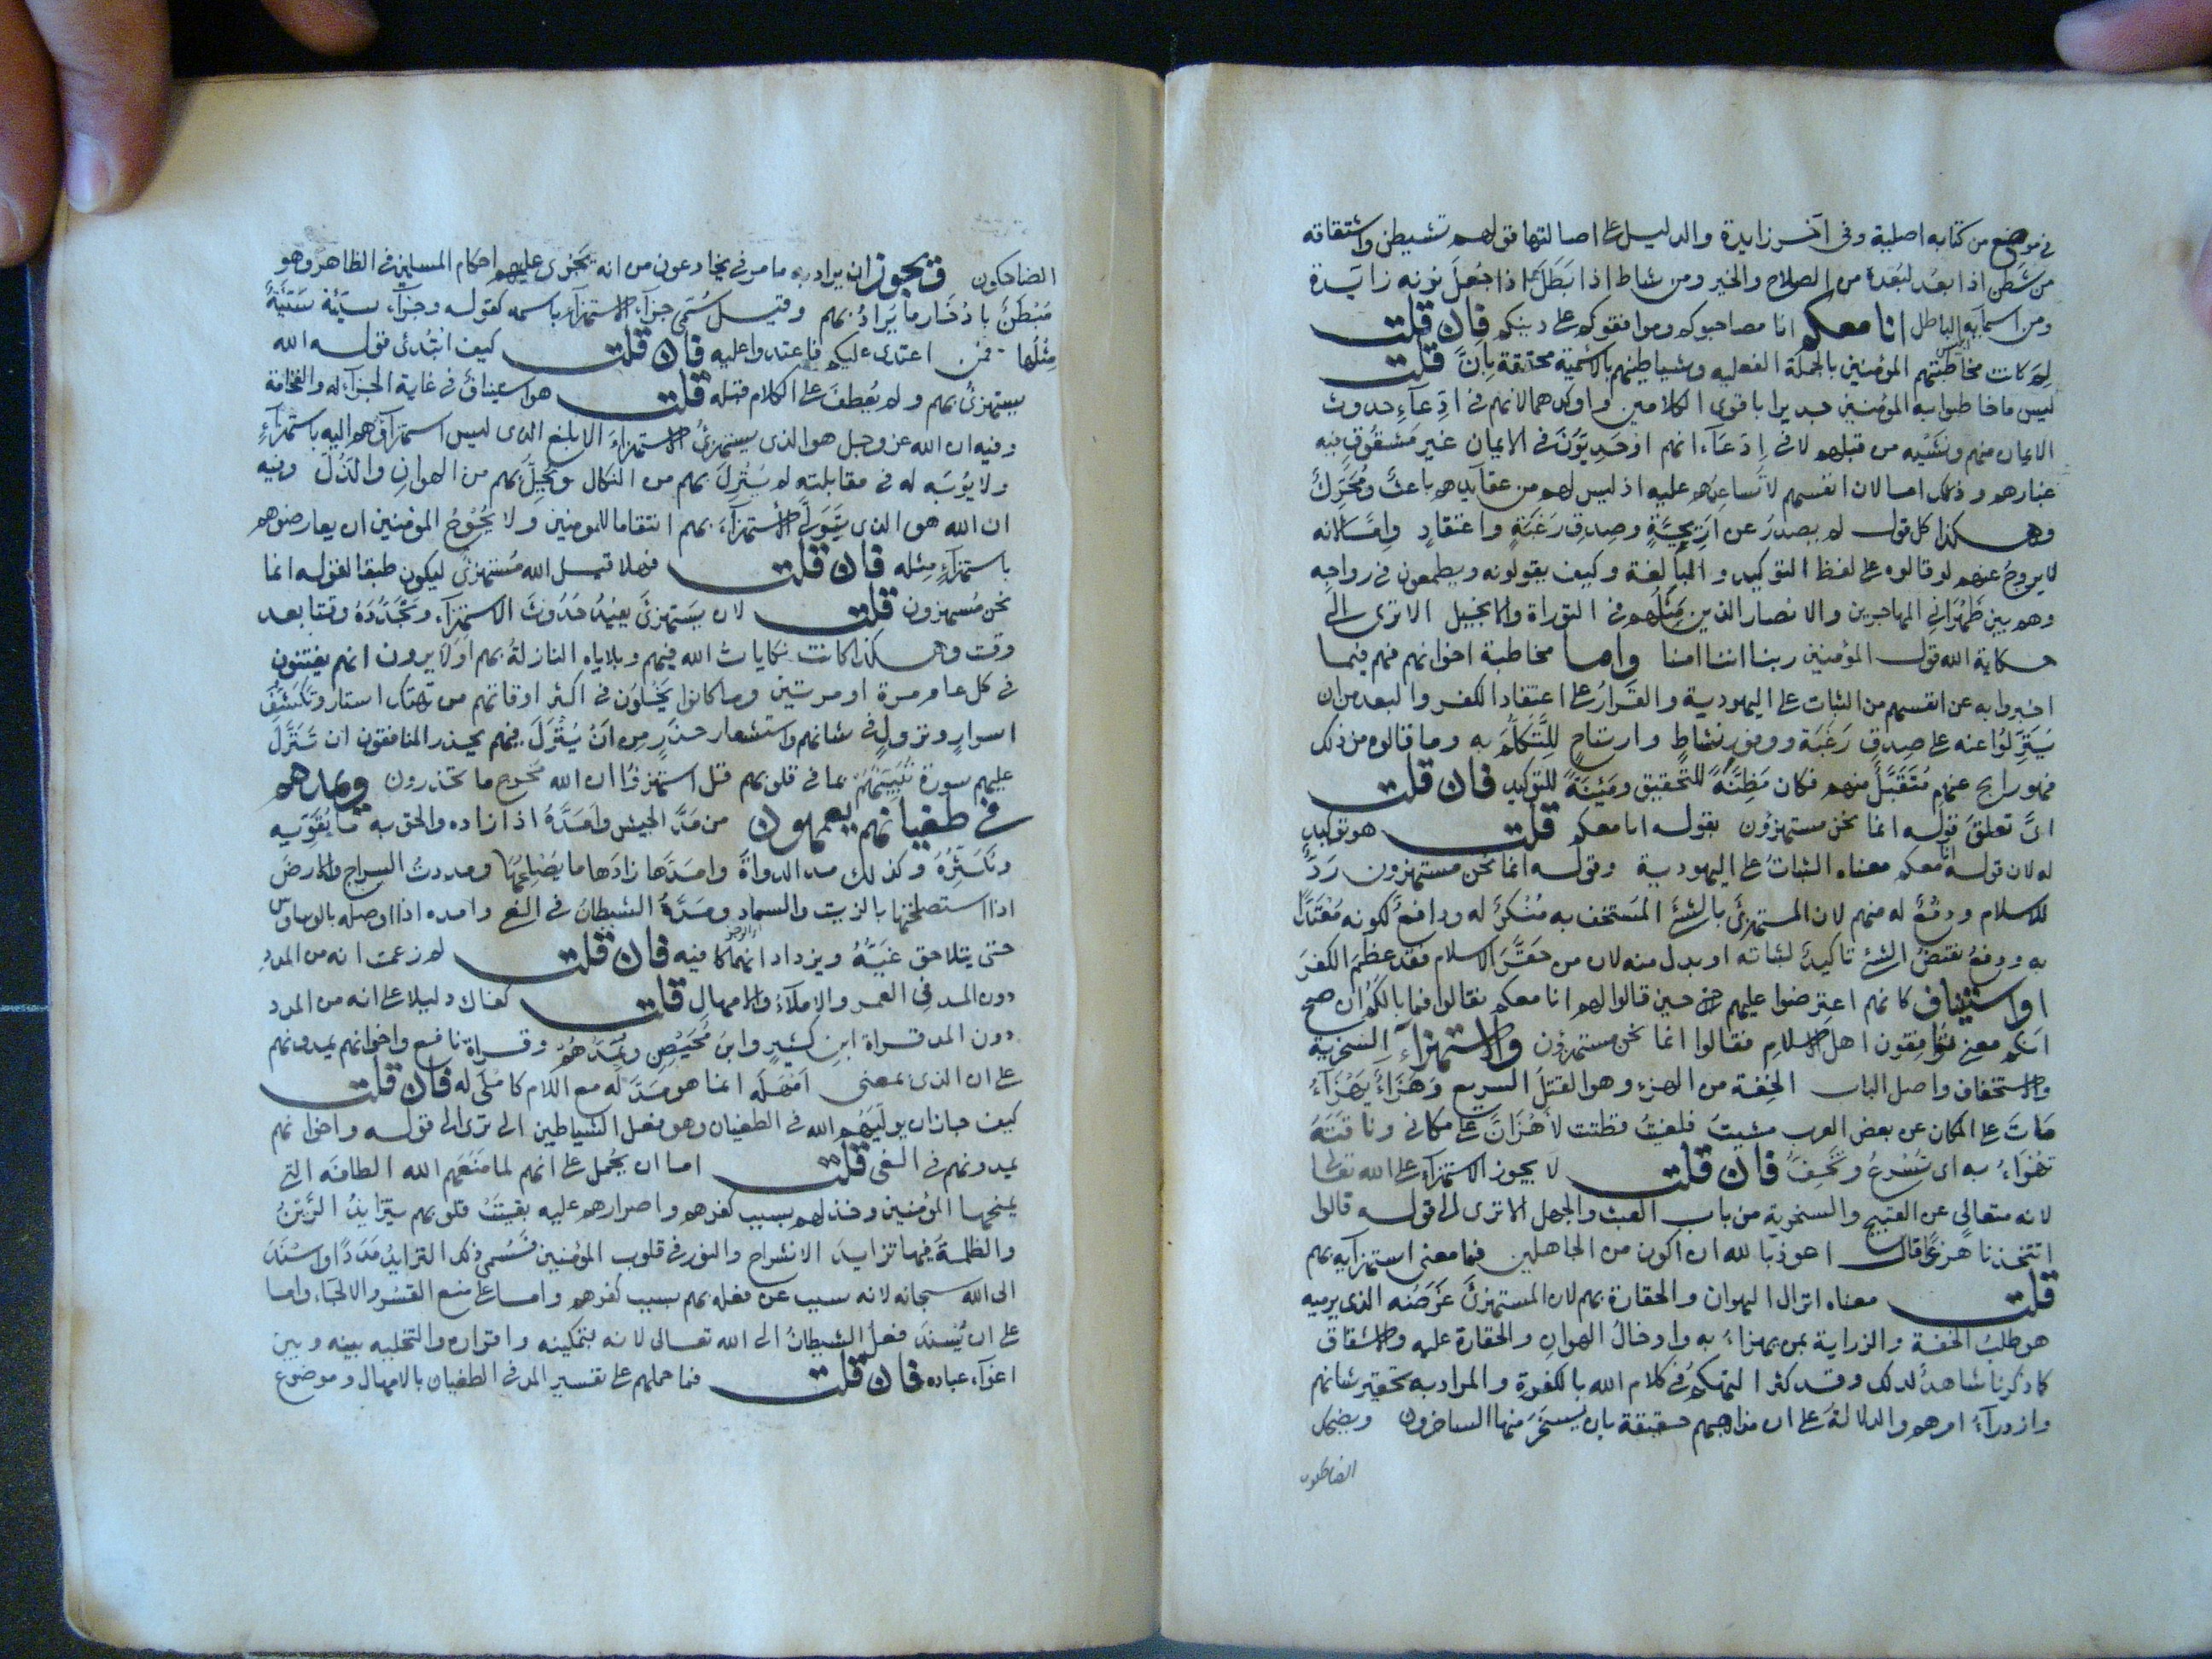 في موضع من كتابه اصلية وفى آخر زايدة والدليل على اصالتها قولهم تشيطن واشتقاقه
من شطن اذا بعد لبعده من الصلاح والخير ومن شاط اذا بَطَل اذا جُعل نونه زايدة
ومن اسمايه الباطل انا معكم انا مصاحبوكم وموافقوكم على دينكم فان قلت
لم كانت مخاطبتهم المؤمنين بالجملة الفعليه وشياطينهم بالاسمية محققة بانّ قلت
ليس ما خاطبوا به المؤمنين جديرا باقوى الكلامين واوكدهما لانهم فى ادّعآء حدوث
الايمان منهم ونشئه من قبلهم لا فى ادعآء انهم اوحديون فى الايمان غير مشقوق فيه
غبارهم وذلك اما لان انفسهم لا تساعدهم عليه اذ ليس لهم من عقآيدهم باعث ومحرك
وهكذا كل قول لم يصدر عن اريحية وصدق رغبة واعتقاد وامّا لانه
لا يروج عنهم لو قالوه على لفظ التوكيد والمبالغة وكيف يقولونه ويطمعون فى رواجه
وهم بين ظهرانى المهاجرين والانصار الذين مثلهم فى التوراة والانجيل الا ترى الى
حكاية الله قول المؤمنين ربنا اننا امنا واما مخاطبة اخوانهم فهم فيما
اخبروا به عن انفسهم من الثبات على اليهودية والقرار على اعتقاد الكفر والبعد من ان
يتزلوا عنه على صدق رغبة ووفور نشاط وارتياح للتكلم به وما قالوه من ذلك
فهو رايج عنهم متقبل منهم فكان مظنّة للتحقيق ومئنة للتوكيد فان قلت
انّى تعلق قوله انما نحن مستهزؤن بقوله انا معكم قلت هو توكيد
له لان قوله انا معكم معناه الثبات على اليهودية وقوله انما نحن مستهزون ردّ
للاسلام ودفع له منهم لان المستهزئ بالشئ المستخف به منكر له ودافع لكونه معتدّا
به ودفع نقيض الشئ تاكيد لثباته او بدل منه لان من حقّر الاسلام فقد عظم الكفر
او استيناف كانهم اعترضوا عليهم حين قالوا لهم انا معكم فقالوا فما بالكم ان صح
انكم معنا توافقون اهل الاسلام فقالوا انما نحن مستهزؤن والاستهزآء السخرية
والاستخفاف واصل الباب الخفة من الهزء وهو القتل السريع وهزأ يهزأ
مات على المكان عن بعض العرب مشيت فلغبت فظننت لأهزأن على مكانى وناقته
تهزأ به اى تسرع وتخف فان قلت لا يجوز الاستهزآء على الله تعالى
لانه متعالى عن القبيح والسخرية من باب العبث والجهل الا ترى الى قوله قالوا
اتتخذنا هزؤا قال اعوذ بالله ان اكون من الجاهلين فما معنى استهزآيه بهم
قلت معناه انزال الهوان والحقارة بهم لان المستهزئ غرضه الذى يرميه
هو طلب الخفة والزراية بمن يهزأ به وادخال الهوان والحقارة عليه والاشتقاق
كما ذكرنا شاهد لذلك وقد كثر التهكم فى كلام الله بالكفرة والمراد به تحقير شانهم
وازدرآء امرهم والدلالة على ان مذاهبهم حقيقة بان يسخر منها الساخرون ويضحك
الضاحكون
الضاحكون ويجوز ان يراد به ما مر فى يخادعون من انه يجرى عليهم احكام المسلمين فى الظاهر وهو
مبطن بادخار ما يراد بهم وقيل سمى جزآء الاستهزآء باسمه كقوله وجزآء سيئة سيئة
مثلها فمن اعتدى عليكم فاعتدوا عليه فان قلت كيف ابتدئ قوله الله
يستهزئ بهم ولم يعطف على الكلام قبله قلت هو استيناف فى غاية الجزآلة والفخامة
وفيه ان الله عز وجل هو الذى يستهزئ بهم الاستهزاء الابلغ الذى ليس استهزآؤهم اليه باستهزآء
ولا يؤبه له فى مقابلته لما ينزل بهم من النكال ويحل بهم من الهوان والذل وفيه
ان الله هو الذى يتولى الاستهزآء بهم انتقاما للمومنين ولا يحوج المؤمنين ان يعارضوهم
باستهزآء مثله فان قلت فهلا قيل الله مستهزئ ليكون طبقا لقوله انما
نحن مستهزون قلت لان يستهزئ يفيد حدوث الاستهزآء وتجدده وقتا بعد
وقت وهكذا كانت نكايات الله فيهم وبلاياه النازلة بهم اولا يرون انهم يفتنون
فى كل عام مرة او مرتين وما كانوا يخلون فى اكثر اوقاتهم من تهتك استار وتكشف
اسرار ونزول فى شانهم واستشعار حذر من ان ينزل فيهم يحذر المنافقون ان تنزل
عليهم سورة تنبئهم بما فى قلوبهم قل استهزؤا ان الله مخرج ما تحذرون ويمدهم
فى طغيانهم يعمهون من مدّ الجيش وامدّه اذا زاده والحق به ما يقويه
ويكثره وكذلك مد الدواة وامدها زادها ما يصلحها ومددت السراج والارض
اذا استصلحتها بالزيت والسماد ومدّه الشيطان فى الغى وامده اذا اوصله بالوساوس
حتى يتلاحق غيّه ويزداد انهماكا فيه فان قلت لم زعمت انه من المدد
دون المد فى العمر والاملآء والامهال قلت كفاك دليلا على انه من المدد
دون المد قراة ابن كثير وابن محيصن ويمدهم وقراة نافع واخوانهم يمدونهم
على ان الذى بمعنى امهله انما هو مدّ له مع اللام كاملى له فان قلت
كيف جاز ان يوليهم الله فى الطغيان وهو فعل الشياطين الى ترى الى قوله واخوانهم
يمدونهم فى الغى قلت اما ان يحمل على انهم لما منعهم الله الطافه التى
يمنحها المؤمنين وخذلهم بسبب كفرهم واصرارهم عليه بقيت قلوبهم يتزايد الرين
والظلمة فيها تزايد الانشراح والنور فى قلوب المؤمنين فسمى ذلك التزايد مددا واسند
الى الله سبحانه لانه سبب عن فعله بهم بسبب كفرهم واما على منع القسر والالجآء واما
على ان يسند فعل الشيطان الى الله تعالى لانه بتمكينه واقداره والتخليه بينه وبين
اغوآء عباده فان قلت فما حملهم على تفسير المد فى الطغيان بالامهال وموضوع